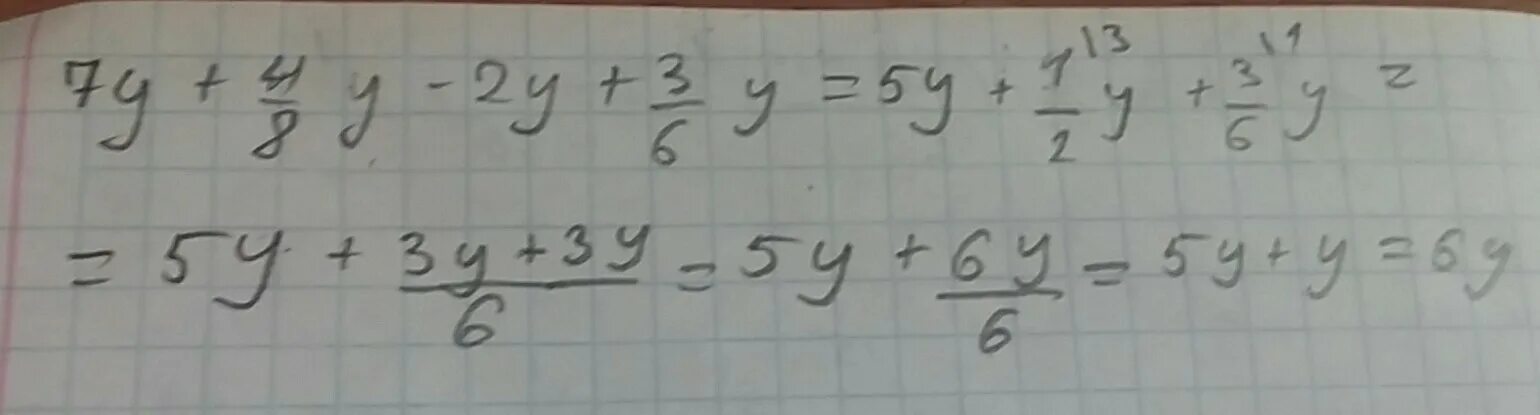 7y + 4/8 y - 2y + 3/6 y = 5y + 1\3/2 y + 3\1/6 y =
= 5y + 3y + 3y/6 = 5y + 6y/6 = 5y + y = 6y